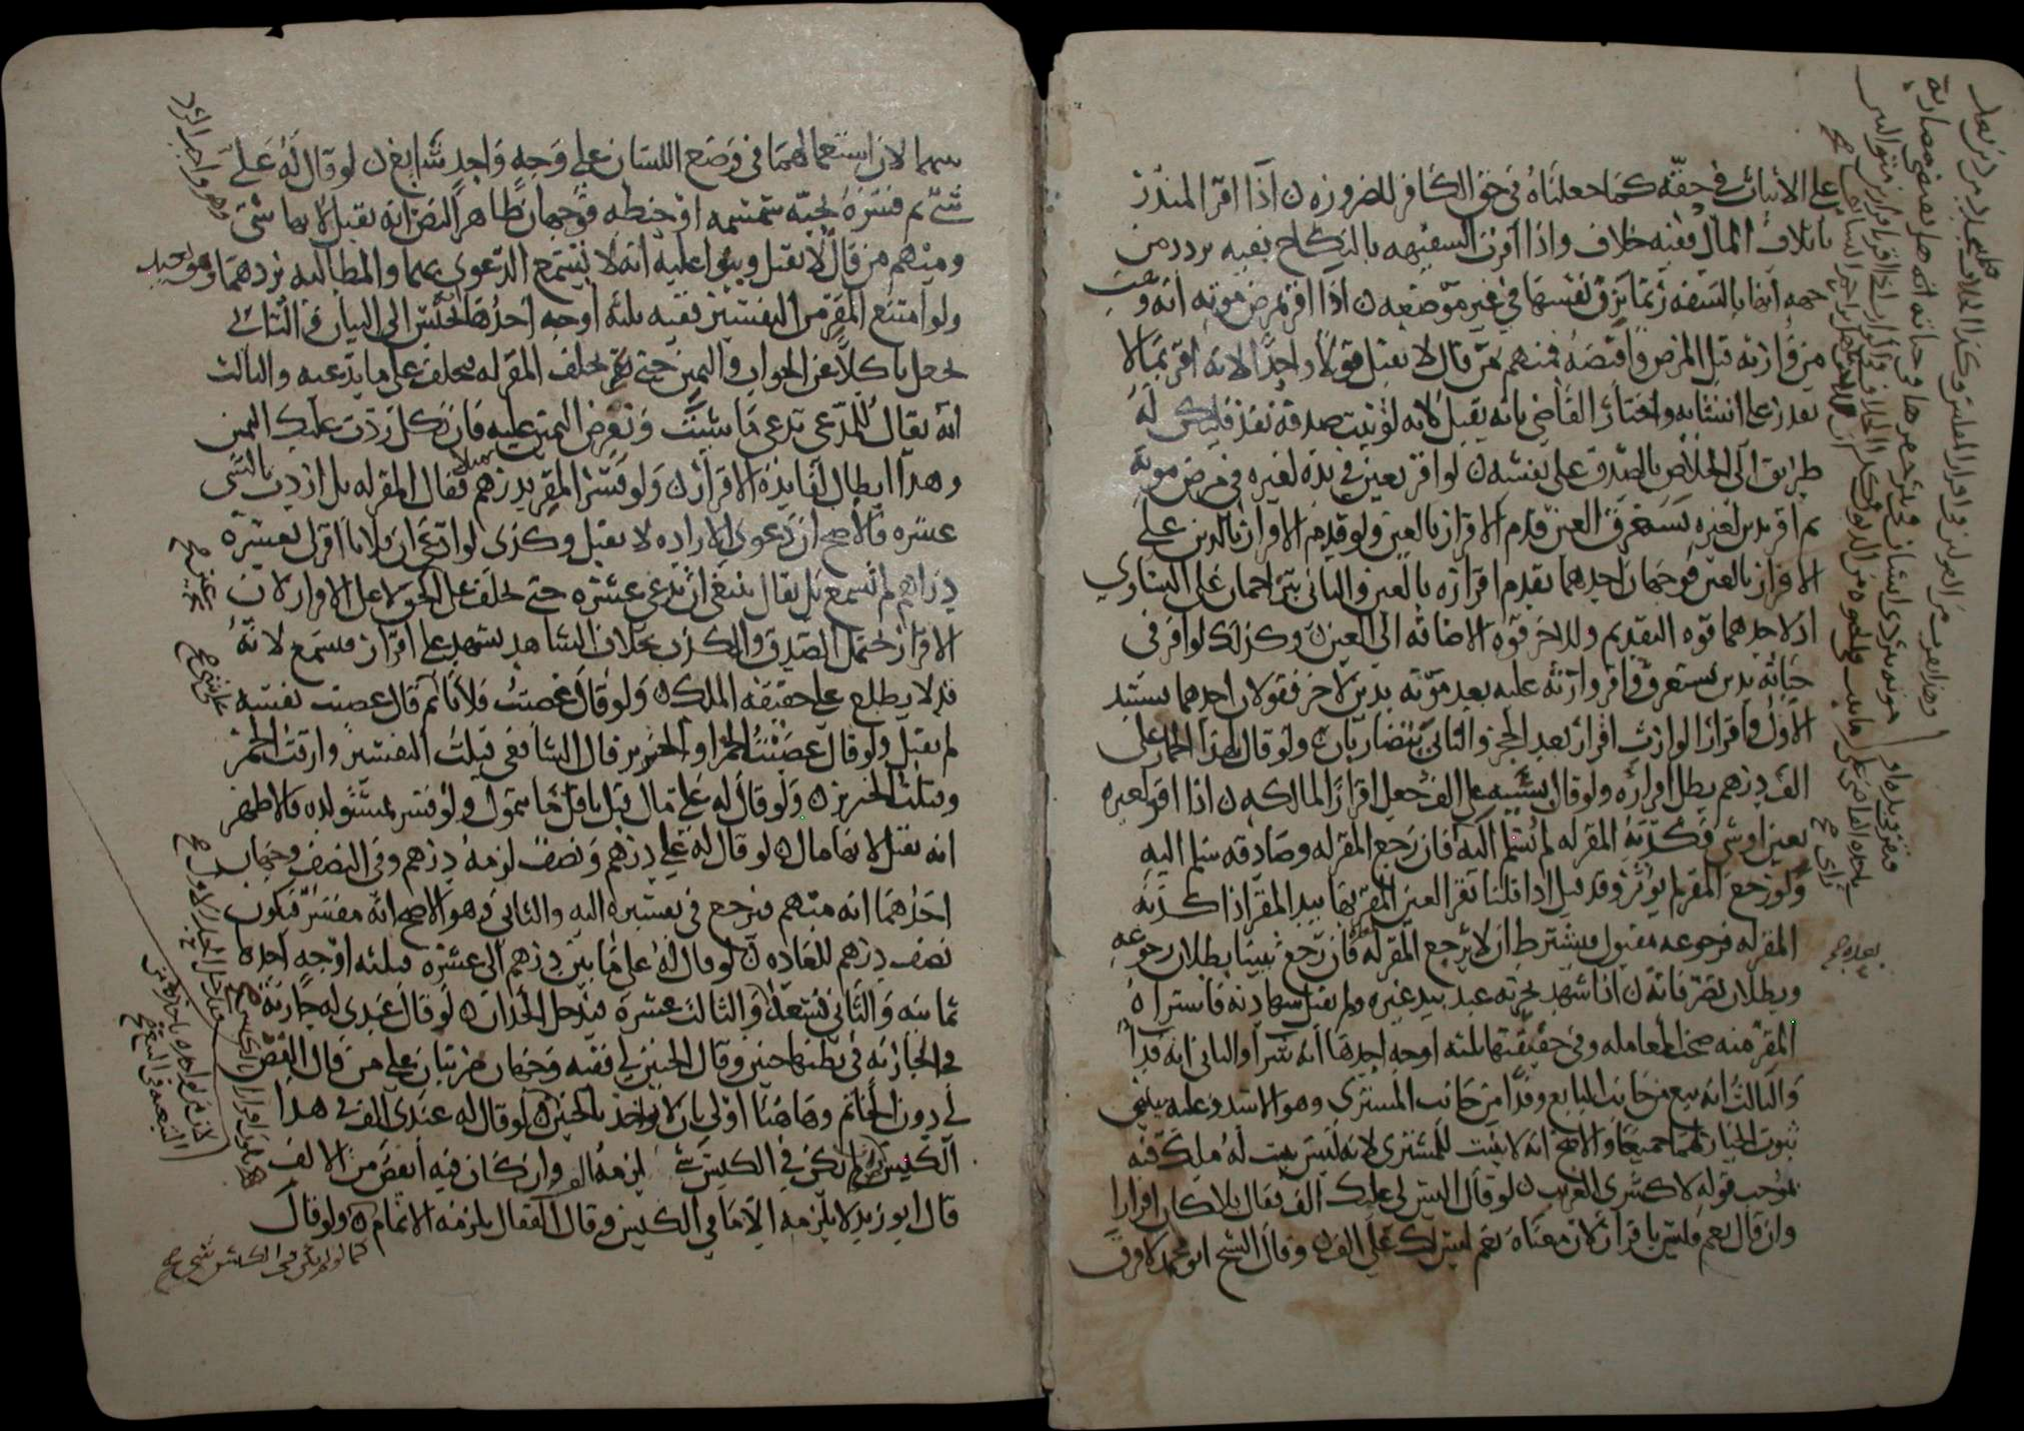 على الاثبات في حقه كما جعلناه في حق الكافر للضرورة ن اذا اقر المبذر
باتلاف المال ففيه خلاف واذا اقرت السفيهه بالنكاح ففيه تردد من
جهه انها بالسفه ربما ترق نفسها في غير موضعه ن اذا اقر مريض موته انه وهب
من وارثه قبل المرض واقبضه فمنهم من قال لا يقبل قولا واحدا لانه اقر بما لا
يقدر على انشائه واختار القاضي بانه يقبل لانه لو ثبت صدقه نفذ فليكن له
طريق الى الخلاص بالصدق على نفسه ن لو اقر بعين في يده لغيره في مرض موته
ثم اقر بدين لغيره يستغرق العين قدم الاقرار بالعين ولو قدم الاقرار بالدين على
الاقرار بالعين فوجهان احدهما يقدم اقراره بالعين والثاني يتزاحمان على التساوي
اذ لاحدهما قوه التقديم وللاخر قوه الاضافه الى العين ن وكذلك لو اقر في
حياته بدين مستغرق فاقر وارثه عليه بعد موته بدين لاخر فقولان احدهما يستبد
الاول فاقرار الوارث اقرار بعد الحجر والثاني يتضاربان ن ولو قال لهذا الحمار على
الف درهم بطل اقراره ولو قال بسببه علي الف جعل اقرارا لمالكه ن اذا اقر لغيره
بعين او شي فكذبه المقر له لم يسلم اليه فان رجع المقر له وصادقه سلم اليه
ولو رجع المقر لم يوثر وقد قيل اذا قلنا تقر العين المقر بها بيد المقر اذا كذبه
المقر له فرجوعه مقبول بشرط ان لا يرجع المقر له فان رجع تبينا بطلان رجوعه
وبطلان تصرفاته ن اذا شهد بحريه عبد بيد غيره ولم تقبل شهادته فاشتراه
المقر منه صحت المعامله وفي حقيقتها ثلثه اوجه احدها انه شرا والثاني انه فدا
والثالث انه بيع من جانب البايع وفدا من جانب المشتري وهو الاسد وعليه يبتني
ثبوت الخيار لهما جميعا والاصح انه لا يثبت للمشتري لانه ليس يثبت له ملك فيه
بموجب قوله لا كشرى القريب ن لو قال اليس لي عليك الف فقال بلى كان اقرارا
وان قال نعم فليس باقرار لان معناه نعم ليس لك علي الف ن وقال الشيخ ابو محمد لا فرق
بينهما لان استعمالهما في وضع اللسان على وجه واحد شايع ن لو قال له علي
شي ثم فسره بحبه سمسمه او حنطه فوجهان ظاهر النص انه يقبل لانها شي
ومنهم من قال لا يقبل وبنوا عليه انه لا يستمع الدعوى بهما والمطالبه بردهما
ولو امتنع المقر من التفسير ففيه ثلثه اوجه احدها الحبس الى البيان والثاني
يجعل ناكلا عن الجواب واليمين حتى يحلف المقر له فيحلف على ما يدعيه والثالث
انه يقال للمدعي تدعي ما شيت وتعرض اليمين عليه فان نكل ردت عليك اليمين
وهذا ابطال لفايده الاقرار ن ولو فسر المقر بدرهم مثلا فقال المقر له بل اردت بالشي
عشره فالاصح ان دعوى الاراده لا تقبل وكذى لو ادعى ان فلانا اقر لي بعشره
دراهم لم تسمع بل يقال ينبغي ان تدعي عشره حتى يحلف على الحق لا على الاقرار لان
الاقرار يحتمل الصدق والكذب بخلاف الشاهد يشهد على اقرار فتسمع لانه
قد لا يطلع على حقيقه الملك ن ولو قال غصبت فلانا ثم قال غصبت نفسه
لم يقبل ولو قال غصبت الخمر او الخنزير قال الشافعي قبلت التفسير وارقت الخمر
وقتلت الخنزير ن ولو قال له علي مال قبل باقل ما يتمول ولو فسر بمستولده فالاظهر
انه يقبل لانها مال ن لو قال له علي درهم ونصف لزمه درهم وفي النصف وجهان
احدهما انه مبهم فيرجع في تفسيره اليه والثاني وهو الاصح انه مفسر فيكون
نصف درهم للعاده ن لو قال له علي ما بين درهم الى عشره فثلثه اوجه احدها
ثمانيه والثاني تسعه والثالث عشره فيدخل الحدان ن لو قال عندي له جاريه
في الجاريه في بطنها جنين وقال الجنين لي ففيه وجهان مرتبان على من قال الفص
لي دون الخاتم وهاهنا اولى بان لا يواخذ بالجنين ن لو قال له عندي الف في هذا
الكيس ولم يكن في الكيس شي لزمه الف وان كان فيه انقص من الالف
قال ابو زيد لا يلزمه الا ما في الكيس وقال القفال يلزمه الاتمام ن ولو قال
كما لو لم يكن في الكيس شي صح